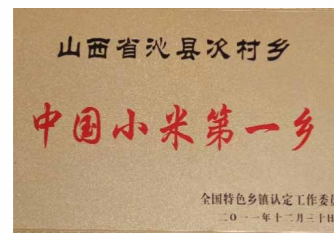 山西省沁县次村乡
中国小米第一乡
全国特色乡镇认定工作委
二〇一一年十二月三十日